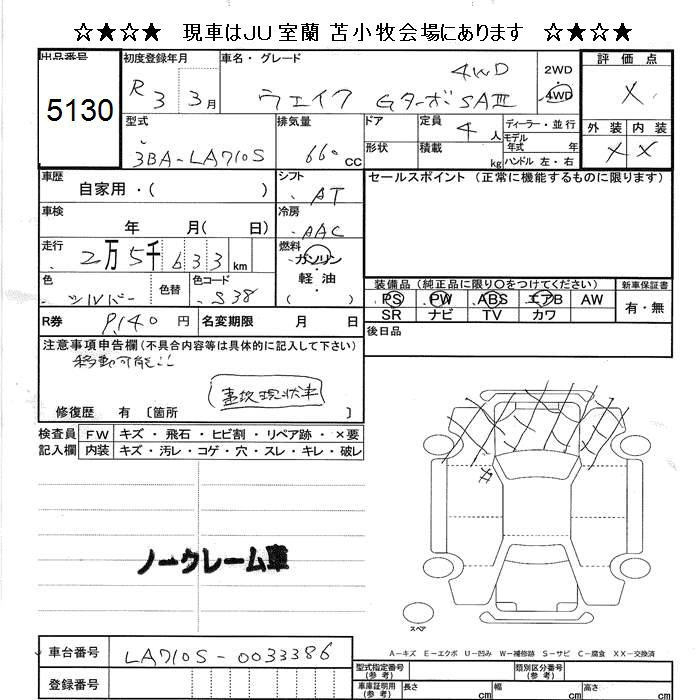 ☆★☆★ 現車はJU室蘭 苫小牧会場にあります ☆★☆★
出品番号 初度登録年月 車名・グレード 評価点
5130 R3 3月 ウェイク GターボSAⅢ 4WD 2WD 4WD X
外装 内装
X X
型式 排気量 ドア 定員 4人 ディーラー・並行
3BA-LA710S 660cc 形状 積載 kg モデル年式 年 ハンドル 左・右
車歴 自家用・( ) シフト AT セールスポイント(正常に機能するものに限ります)
車検 年 月( 日) 冷房 AAC
走行 2万5千633km 燃料 ガソリン
軽・油
( )
色 シルバー 色替 色コード S38
装備品(純正品に限り○をつけてください) 新車保証書
PS PW ABS エアB AW 有・無
SR ナビ TV カワ
R券 9,140円 名変期限 月 日 後日品
注意事項申告欄(不具合内容等は具体的に記入して下さい)
移動可能!!
事故現状車
修復歴 有〔箇所 〕
検査員 FW キズ・飛石・ヒビ割・リペア跡・×要
記入欄 内装 キズ・汚レ・コゲ・穴・スレ・キレ・破レ
ノークレーム車
スペア
A-キズ E-エクボ U-凹み W-補修跡 S-サビ C-腐食 XX-交換済
車台番号 LA710S-0033386 型式指定番号(参考) 類別区分番号(参考)
登録番号 車庫証明用(参考) 長さ cm 幅 cm 高さ cm